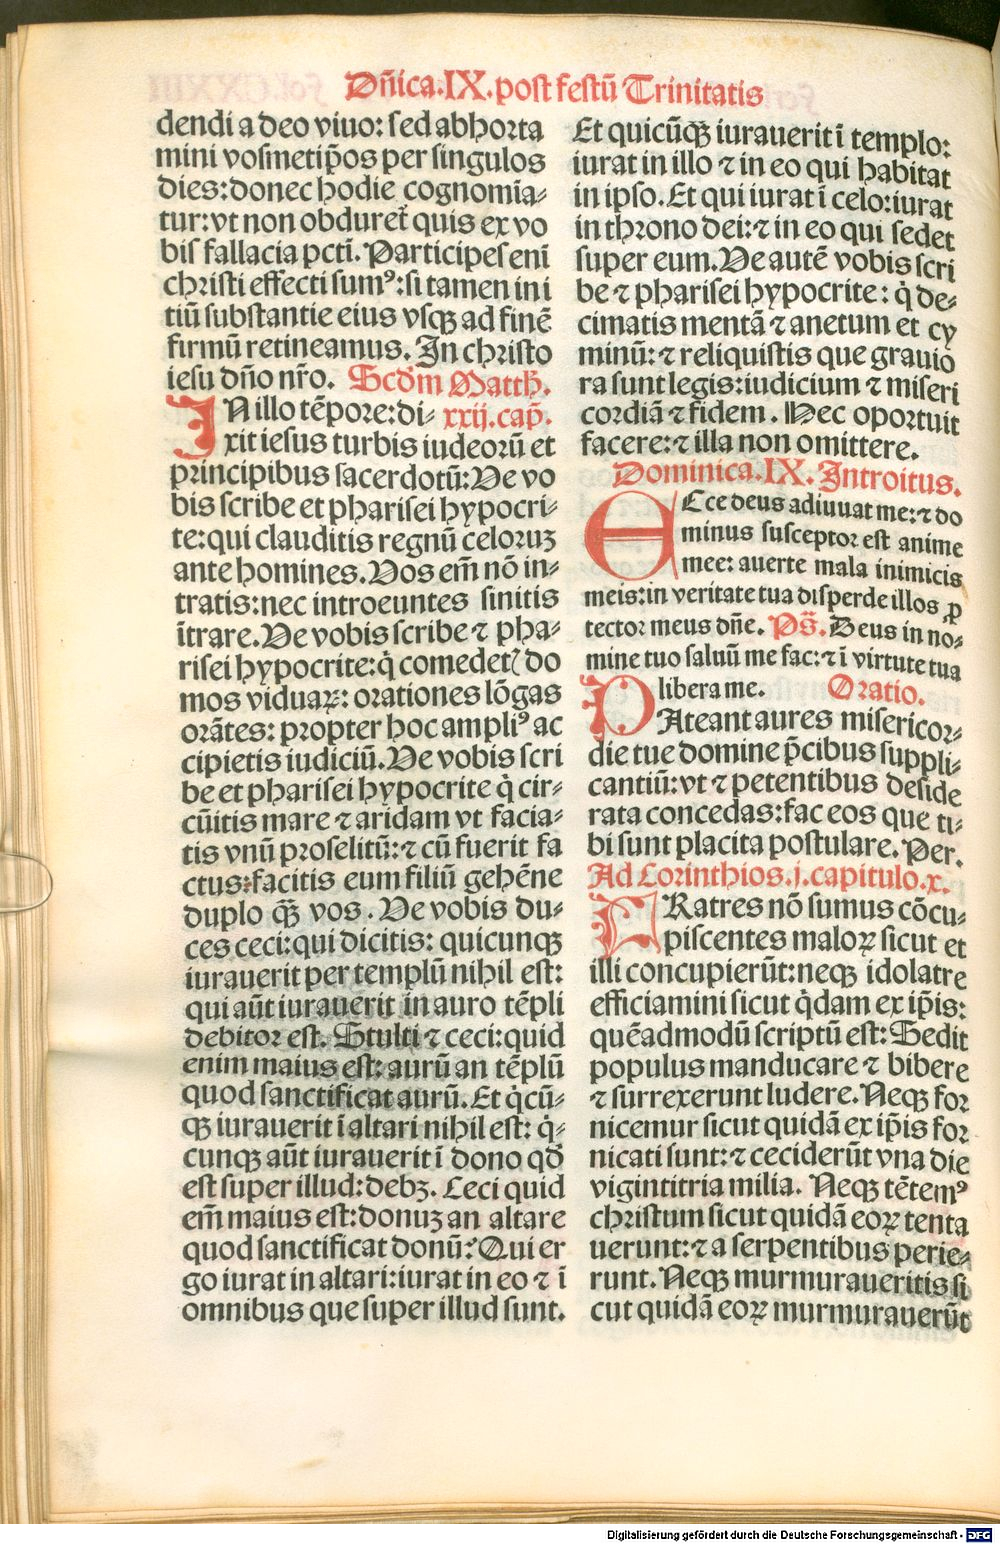 Dñica.IX.post festū Trinitatis
dendi a deo viuo: sed abhorta
mini vosmetip̄os per singulos
dies: donec hodie cognomīa⸗
tur: vt non obduret᷑ quis ex vo
bis fallacia pcti̅. Participes eni̅
christi effecti sumꝰ: si tamen ini
tiū substantie eius vsqꝫ ad finē
firmū retineamus. In christo
iesu dño nr̄o. Scd̄m Matth̄.
IN illo tēpore: di⸗ xxij.cap̄.
xit iesus turbis iudeorū et
principibus sacerdotū: Ve vo
bis scribe et pharisei hypocri⸗
te: qui clauditis regnū celoruꝫ
ante homines. Vos em̄ nō in⸗
tratis: nec introeuntes sinitis
ītrare. Ve vobis scribe ⁊ pha⸗
risei hypocrite: q̇ comedet᷑ do
mos viduaꝝ: orationes lōgas
orātes: propter hoc ampliꝰ ac
cipietis iudiciū. Ve vobis scri
be et pharisei hypocrite q̇ cir⸗
cūitis mare ⁊ aridam vt facia⸗
tis vnū proselitū: ⁊ cū fuerit fa
ctus: facitis eum filiū gehēne
duplo qꝫ̄ vos. Ve vobis du⸗
ces ceci: qui dicitis: quicunqꝫ
iurauerit per templū nihil est:
qui aūt iurauerit in auro tēpli
debitor est. Stulti ⁊ ceci: quid
enim maius est: aurū an tēplū
quod sanctificat aurū. Et q̇cū⸗
qꝫ iurauerit ī altari nihil est: q̇⸗
cunqꝫ aūt iurauerit ī dono qd̄
est super illud: debꝫ. Ceci quid
em̄ maius est: donuꝫ an altare
quod sanctificat donū? Qui er
go iurat in altari: iurat in eo ⁊ ī
omnibus que super illud sunt.
Et quicūqꝫ iurauerit ī templo:
iurat in illo ⁊ in eo qui habitat
in ipso. Et qui iurat ī celo: iurat
in throno dei: ⁊ in eo qui sedet
super eum. Ve autē vobis scri
be ⁊ pharisei hypocrite: q̇ de⸗
cimatis mentā ⁊ anetum et cy
minū: ⁊ reliquistis que grauio
ra sunt legis: iudicium ⁊ miseri
cordiā ⁊ fidem. Hec oportuit
facere: ⁊ illa non omittere.
Dominica.IX. Introitus.
ECce deus adiuuat me: ⁊ do
minus susceptor est anime
mee: auerte mala inimicis
meis: in veritate tua disperde illos ꝓ
tector meus dñe. Ps̄. Deus in no⸗
mine tuo saluū me fac: ⁊ ī virtute tua
libera me. Oratio.
PAteant aures misericor⸗
die tue domine p̄cibus suppli⸗
cantiū: vt ⁊ petentibus deside
rata concedas: fac eos que ti⸗
bi sunt placita postulare. Per.
Ad Corinthios.j.capitulo.x.
FRatres nō sumus cōcu⸗
piscentes maloꝝ sicut et
illi concupierūt: neqꝫ idolatre
efficiamini sicut q̇dam ex ip̄is:
quēadmodū scriptū est: Sedit
populus manducare ⁊ bibere
⁊ surrexerunt ludere. Neqꝫ for
nicemur sicut quidā ex ip̄is for
nicati sunt: ⁊ ceciderūt vna die
vigintitria milia. Neqꝫ tētemꝰ
christum sicut quidā eoꝝ tenta
uerunt: ⁊ a serpentibus perie⸗
runt. Neqꝫ murmuraueritis si
cut quidā eoꝝ murmurauerūt
Digitalisierung gefördert durch die Deutsche Forschungsgemeinschaft - DFG